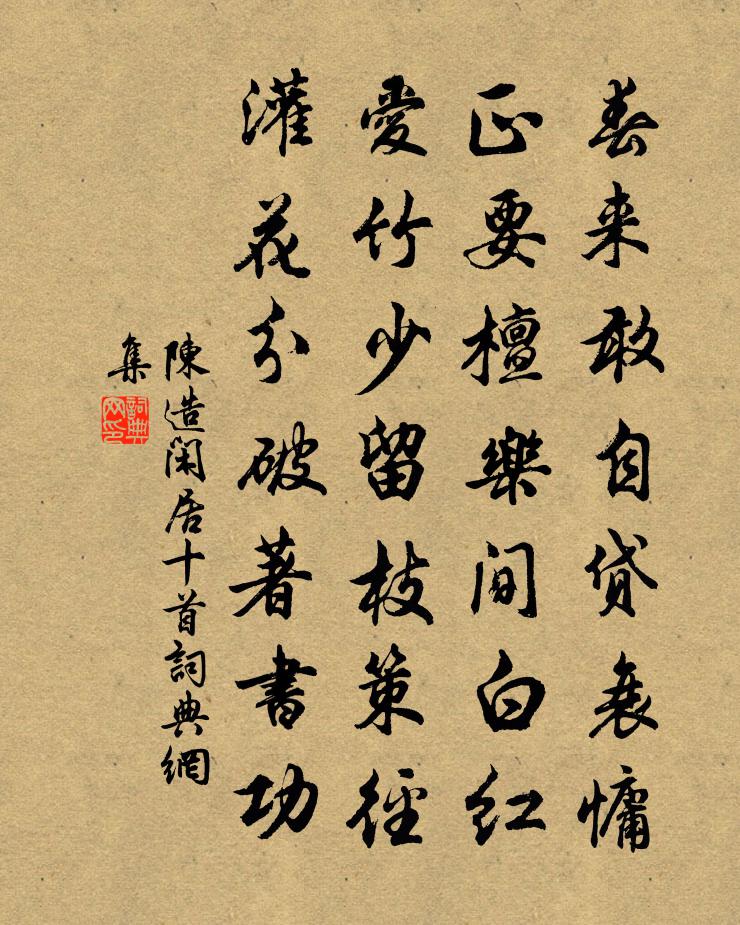 春来敢自贷衰慵
正要檀樂間白红
愛竹少留枝策徑
灌花分破著書功
陳造閑居十首詞典網
集
詞典网印